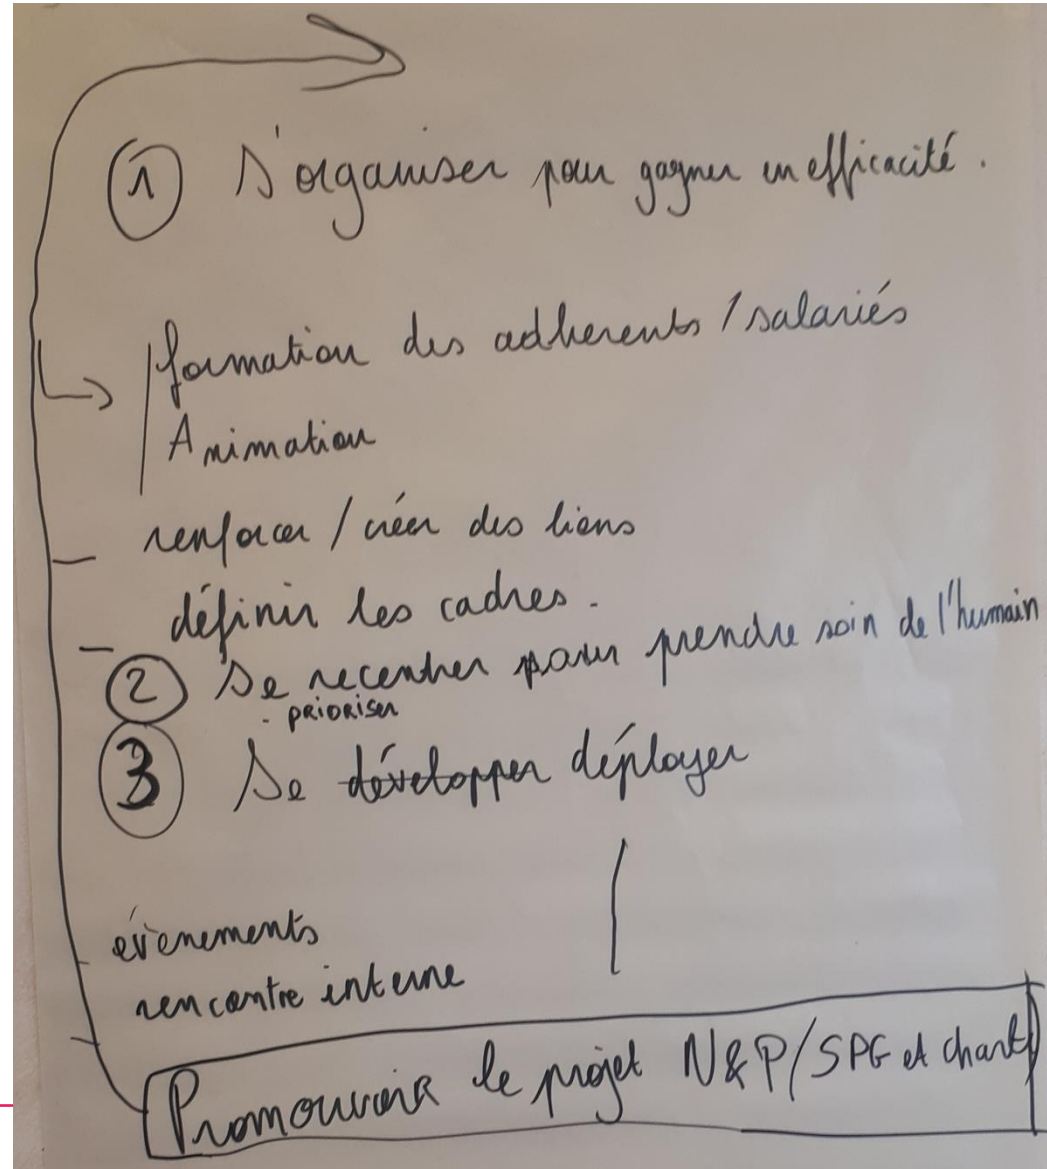 ① S'organiser pour gagner en efficacité.
formation des adherents / salariés
Animation
renforcer / créer des liens
définir les cadres.
② Se recentrer pour prendre soin de l'humain
. PRIORISER
③ Se développer déployer
évènements
rencontre interne
Promouvoir le projet N&P/SPG et charte